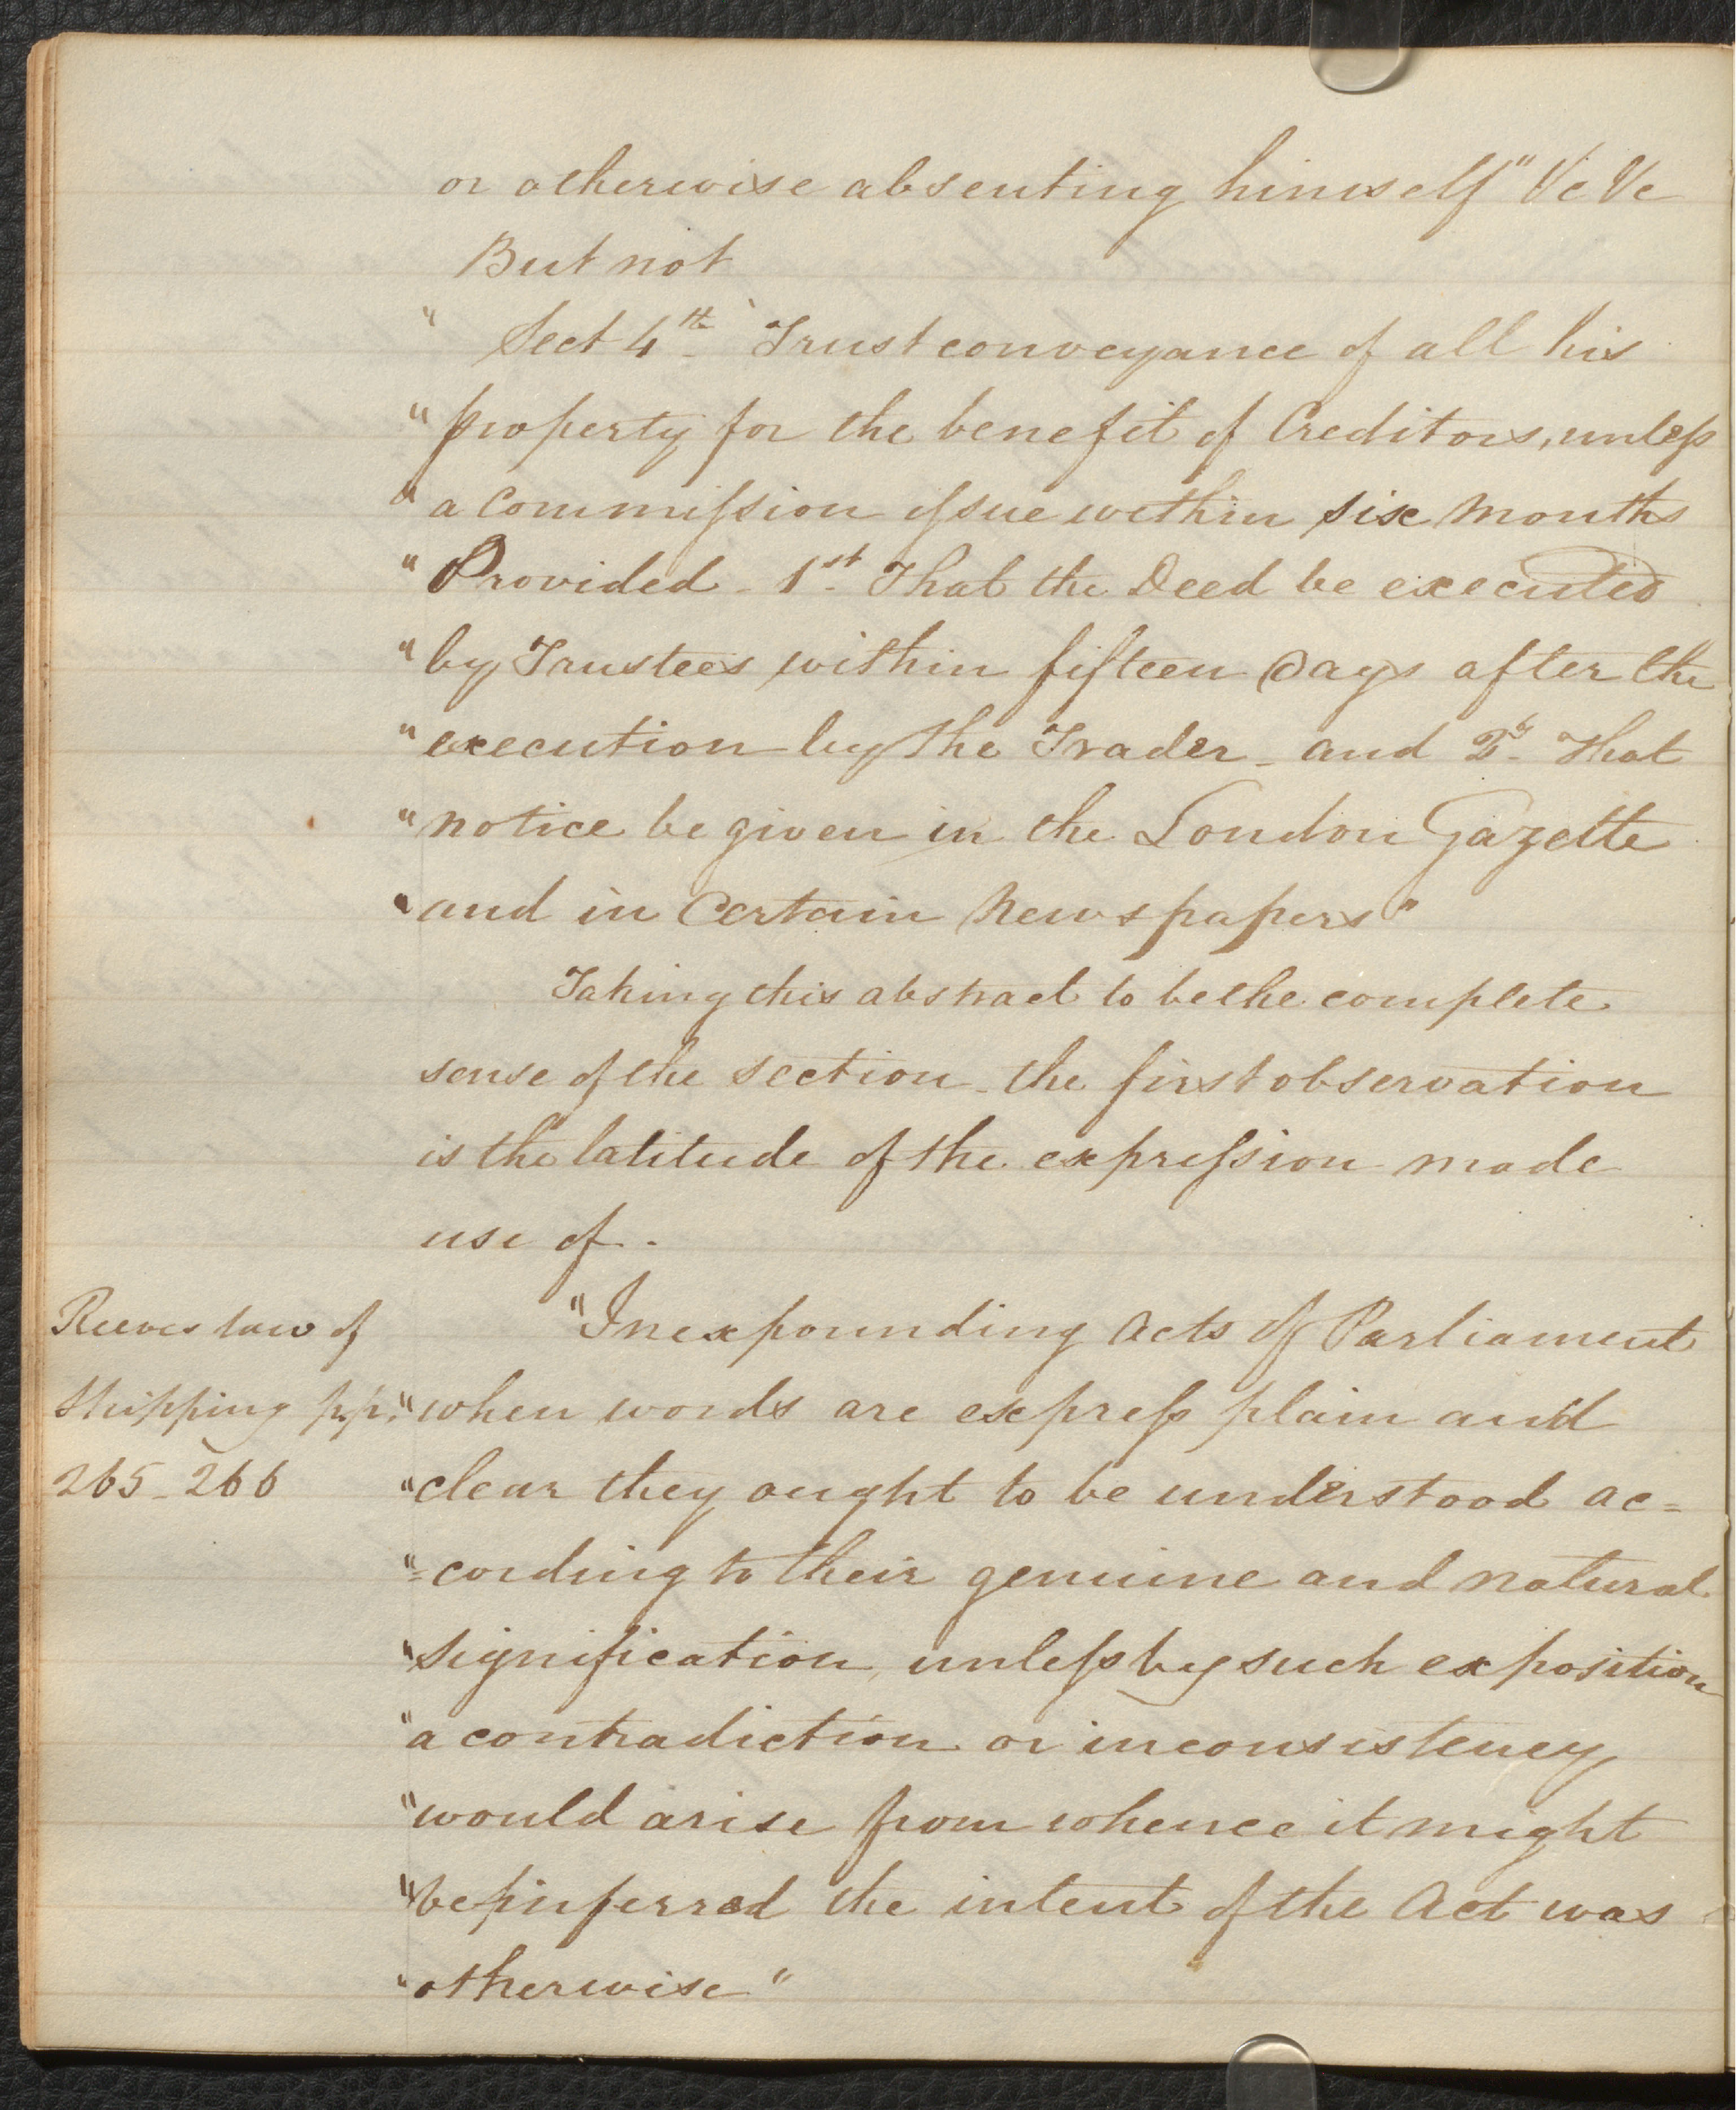 or otherwise absenting himself" &c &c
But not
" Sect 4th Trust conveyance of all his
" property for the benefit of Creditors, unless
" a Commission issue within six Months
" Provided - 1st. That the Deed be executed
" by Trustees within fifteen Days after the
" execution by the Trader - and 2d. That
" notice be given in the London Gazette
" and in Certain Newspapers"
Taking this abstract to be the complete
sense of the section - the first observation
is the latitude of the expression made
use of.
Reeves law of
Shipping pp.
265 - 266
"In expounding Acts of Parliament
" when words are express plain and
" clear they ought to be understood ac=
" =cording to their genuine and natural
" signification, unless by such exposition
" a contradiction or inconsistency
" would arise from whence it might
" be inferred the intent of the Act was
" otherwise"